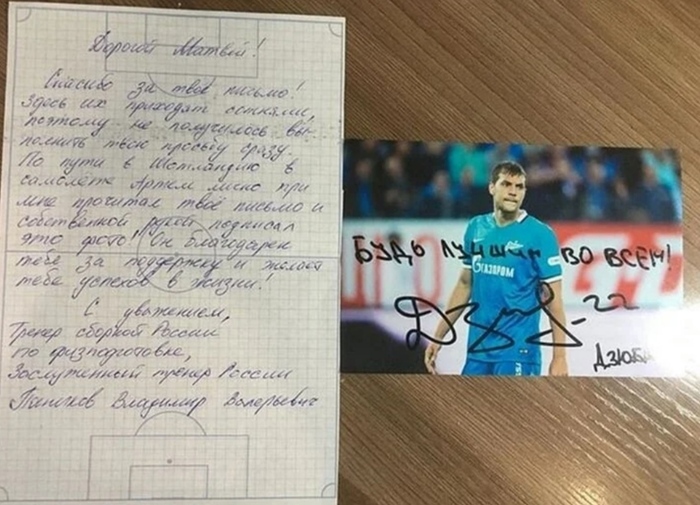 Дорогой Матвей!
Спасибо за твоё письмо!
Здесь их приходят сотнями,
поэтому не получилось вы-
полнить твою просьбу сразу.
По пути в Шотландию в
самолёте Артем лично при
мне прочитал твоё письмо и
собственной рукой подписал
это фото! Он благодарен
тебе за поддержку и желает
тебе успехов в жизни!
С уважением,
Тренер сборной России
по физподготовке,
Заслуженный тренер России
Паников Владимир Валерьевич
БУДЬ ЛУЧШИМ ВО ВСЕМ!
ГАЗПРОМ
22
ДЗЮБА